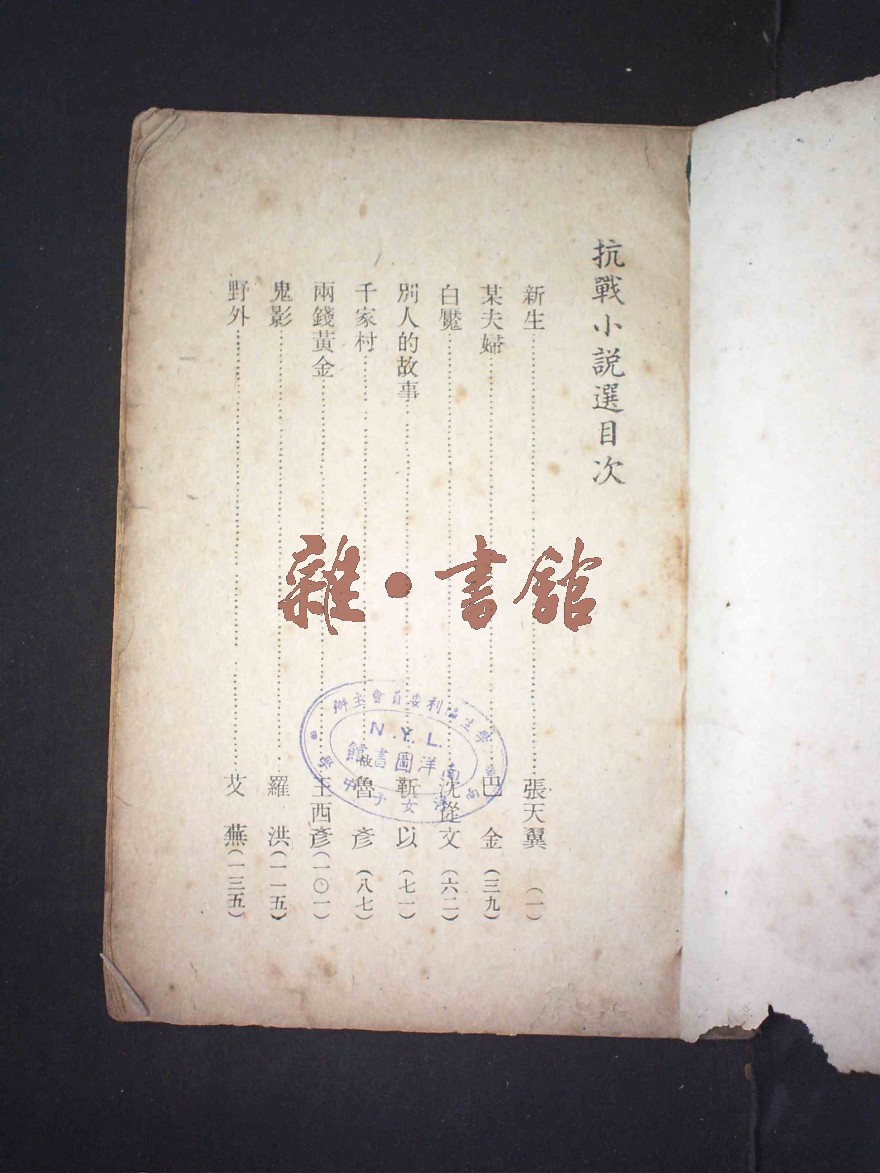 抗戰小説選目次
新生……張天翼(一)
某夫婦……巴金(三九)
白魘……沈從文(六二)
別人的故事……靳以(七一)
千家村……故魯彥(八七)
兩錢黃金……王西彥(一〇一)
鬼影……羅洪(一一五)
野外……艾蕪(一三五)
雜·書館
學生福利委員會主辦
N.Y.L.
南洋圖書館
南洋女子中學